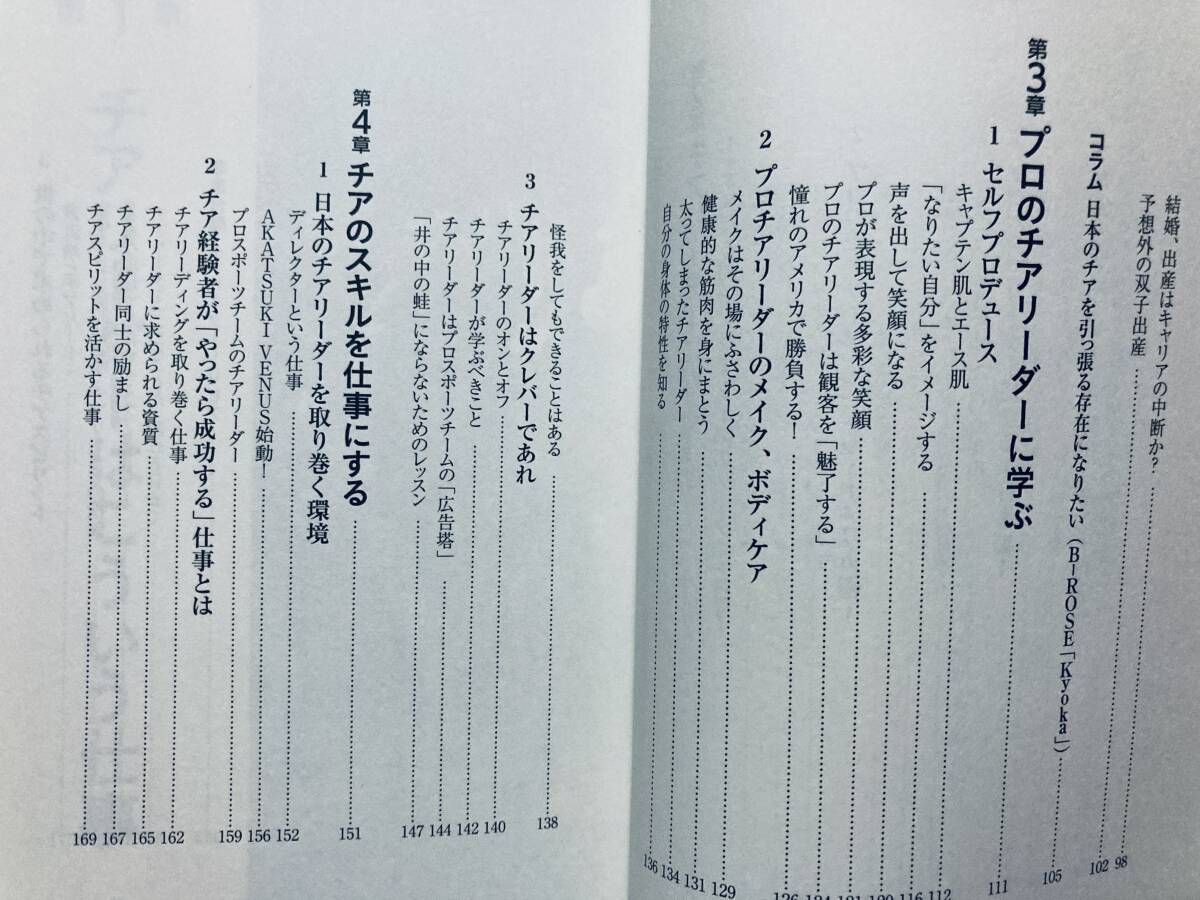 結婚、出産はキャリアの中断か？ 98
予想外の双子出産 102
コラム 日本のチアを引っ張る存在になりたい（B-ROSE「Kyoka」） 105
第3章 プロのチアリーダーに学ぶ 111
1 セルフプロデュース
キャプテン肌とエース肌 112
「なりたい自分」をイメージする 116
声を出して笑顔になる 120
プロが表現する多彩な笑顔 121
プロのチアリーダーは観客を「魅了する」 124
憧れのアメリカで勝負する！ 126
2 プロチアリーダーのメイク、ボディケア
メイクはその場にふさわしく 129
健康的な筋肉を身にまとう 131
太ってしまったチアリーダー 134
自分の身体の特性を知る 136
怪我をしてもできることはある 138
3 チアリーダーはクレバーであれ
チアリーダーのオンとオフ 140
チアリーダーが学ぶべきこと 142
チアリーダーはプロスポーツチームの「広告塔」 144
「井の中の蛙」にならないためのレッスン 147
第4章 チアのスキルを仕事にする 151
1 日本のチアリーダーを取り巻く環境
ディレクターという仕事 152
AKATSUKI VENUS始動！ 156
プロスポーツチームのチアリーダー 159
2 チア経験者が「やったら成功する」仕事とは
チアリーディングを取り巻く仕事 162
チアリーダーに求められる資質 165
チアリーダー同士の励まし 167
チアスピリットを活かす仕事 169